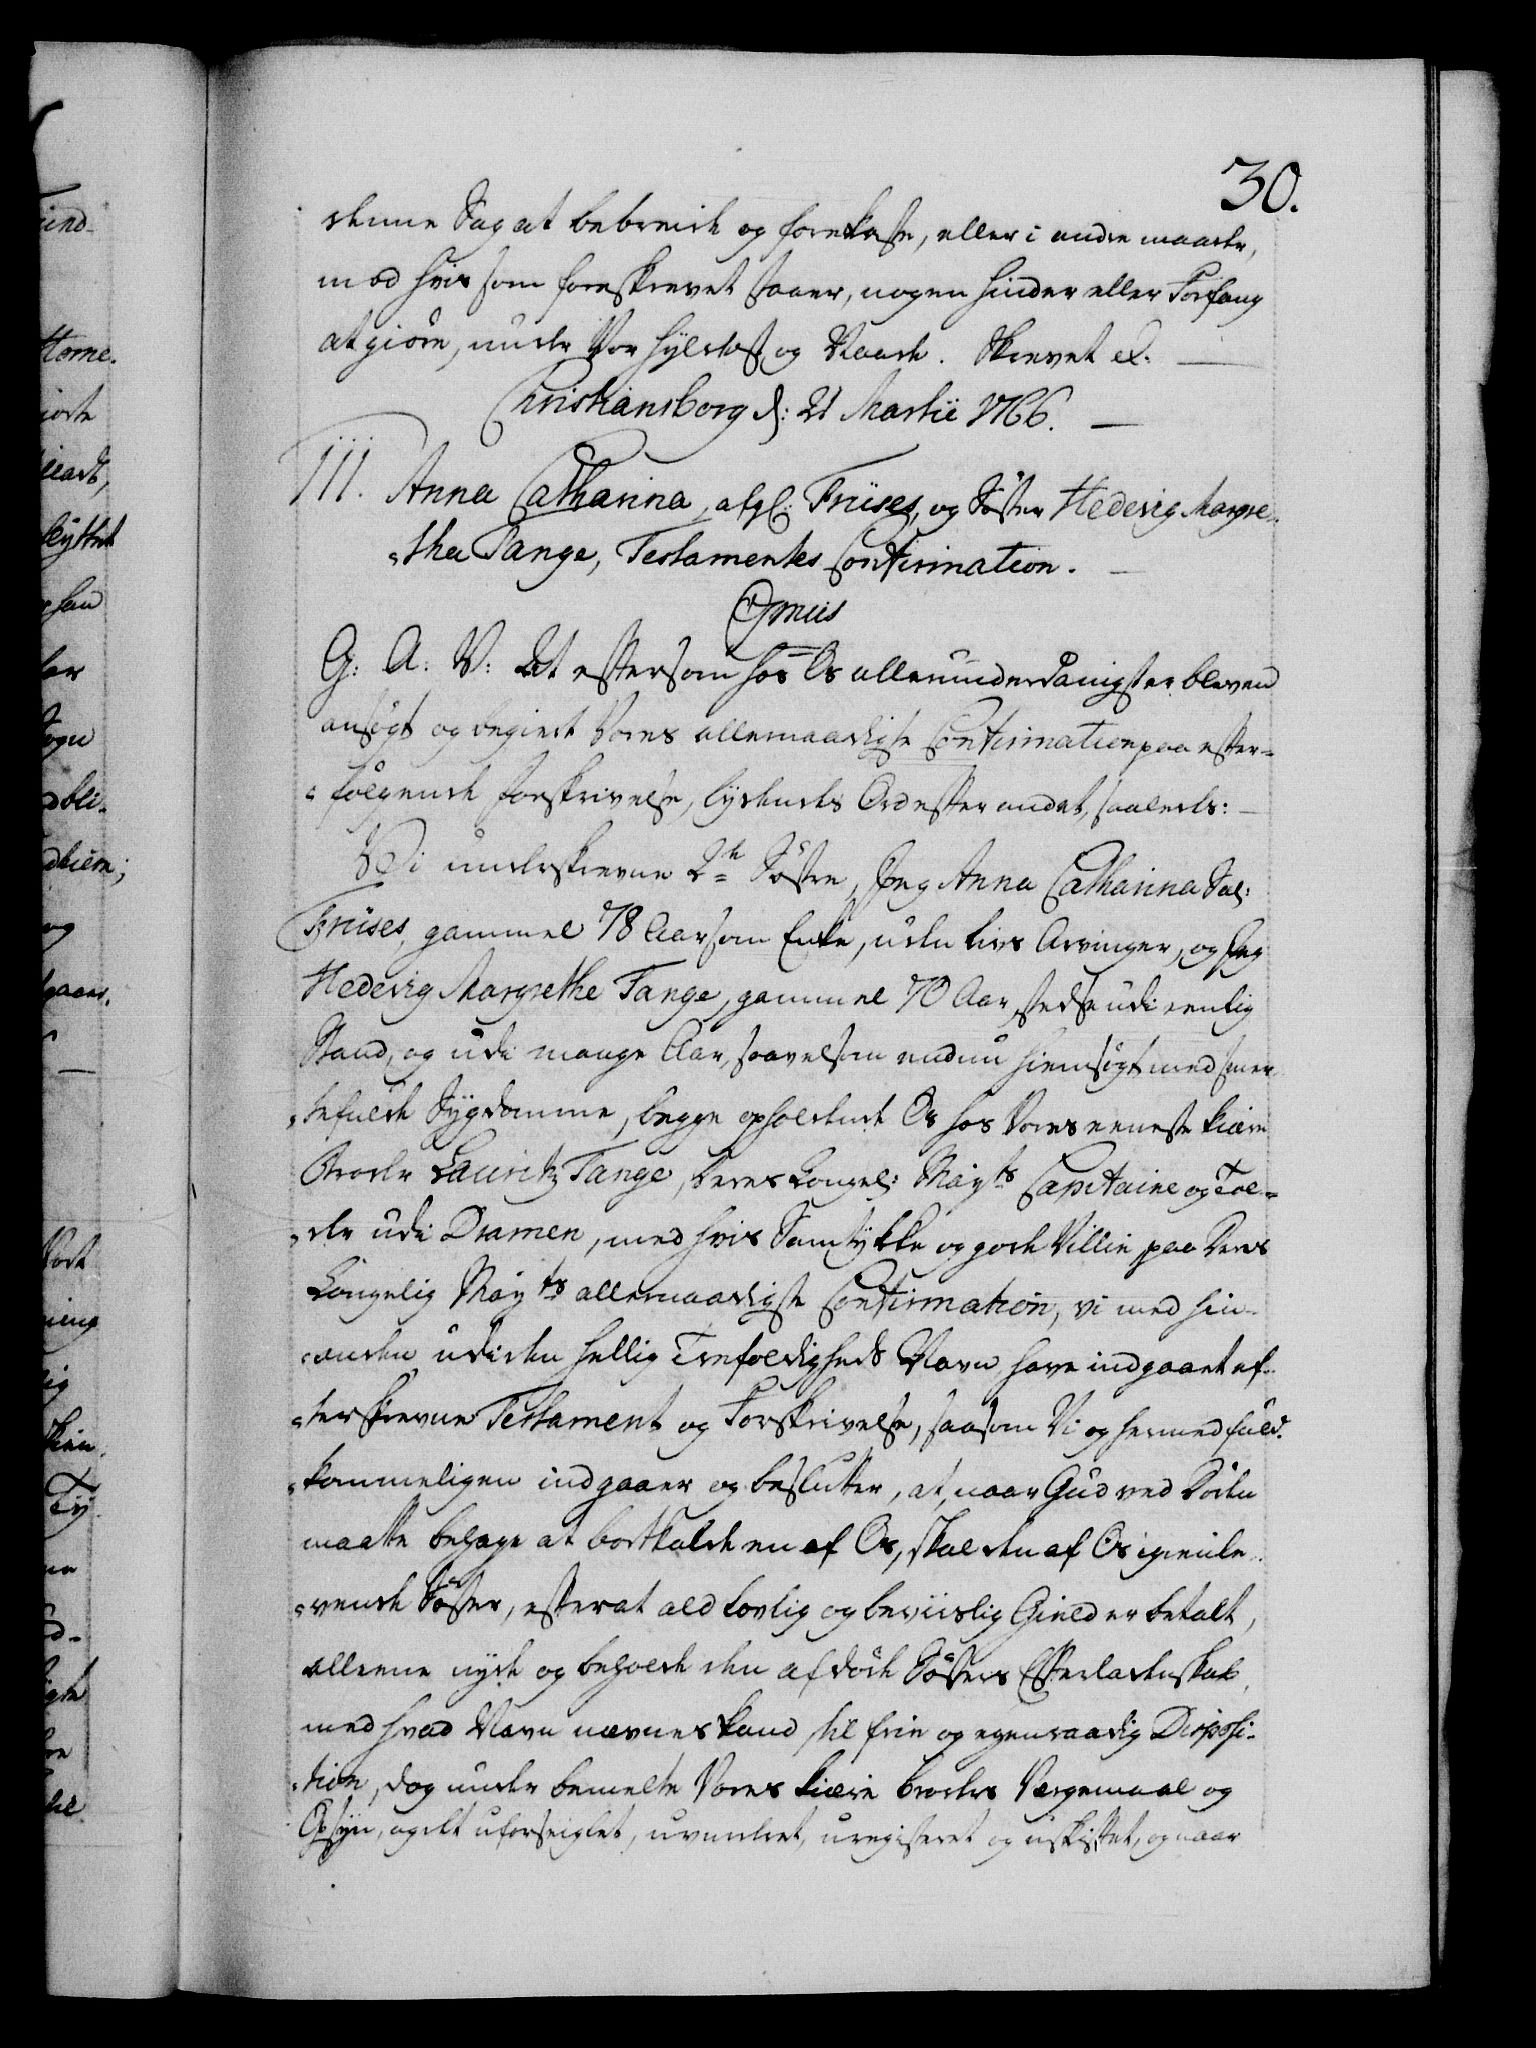 30.
denne Sag at bebreide og forekaste, eller i andre maader,
mod hvis som foreskrevet staaer, nogen hinder eller Forfang
at giøre, under Vor Hyldest og Naade. Skrevet &.
Christiansborg d: 21 Martii 1766.
111. Anna Catharina, afgl: Friises, og Søster Hedevig Margre-
-thea Tange, Testamentes Confirmation.
G: A: V: At eftersom hos Os allerunderdanigst er bleven
ansøgt og begiert Vores allernaadigste Confirmation paa efter-
-følgende forskrivelse, lydendes Ord efter andet, saaledes:
Vi underskrevne 2de Søstre, Jeg Anna Catharina Sal:
Friises, gammel 78 Aar som Enke, uden livs Arvinger, og Jeg
Hedevig Margrethe Tange, gammel 70 Aar, stedse udi eenlig
Stand, og udi mange Aar, saavelsom endnu hiemsøgt med smer-
-tefulde Sygdomme, begge opholdende Os hos Vores eeneste kiære
Broder Lauritz Tange, Deres Kongel: Mayts Capitaine og Tol-
-der udi Dramen, med hvis Samtykke og gode Villie paa Deres
Kongelig Mayts allernaadigste Confirmation, vi med hin-
-anden udi den hellig Trefoldigheds Navn, have indgaaet ef-
-terskrevne Testament og Forskrivelse, saasom Vi og hermed fuld-
-kommeligen indgaaer og beslutter, at, naar Gud ved Døden
maatte behage at bortkalde en af Os, skal den af Os igienle-
-vende Søster, efterat ald lovlig og beviislig Gield er betalt,
alleene nyde og beholde den afdøde Søsters Efterladenskab,
med hvad Navn nævnes kand, til frie og egenraadig Disposi-
-tion, dog under bemelte Vores kiære broders Værgemaal og
Opsyn, og det uforseiglet, uvurderet, uregisteret og uskiftet, og naar